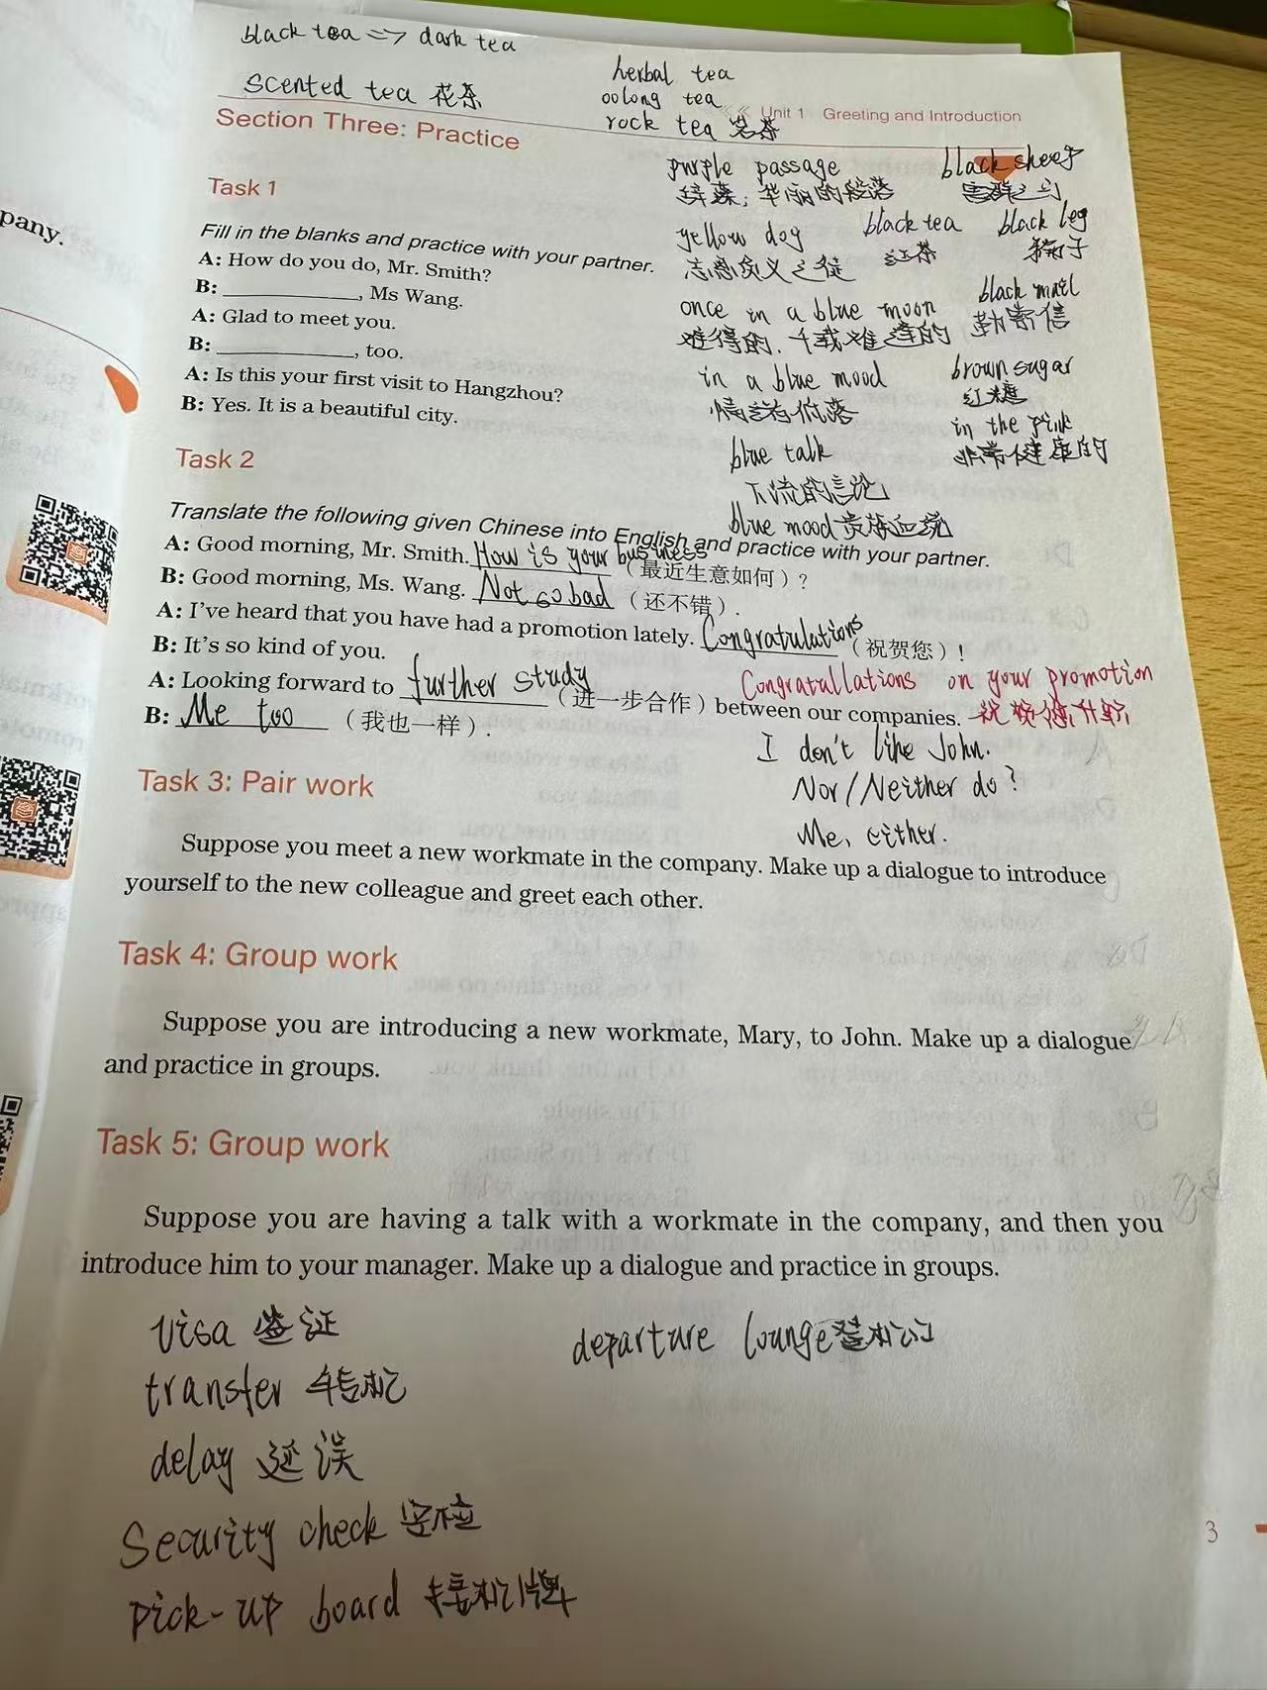 black tea => dark tea
scented tea 花茶
herbal tea
oolong tea
rock tea 岩茶
Unit 1 Greeting and Introduction
Section Three: Practice
purple passage
华丽的段落
black sheep
害群之马
yellow dog
忘恩负义之徒
black tea
红茶
black leg
骗子
once in a blue moon
难得的、千载难逢的
black mail
勒索信
in a blue mood
情绪低落
brown sugar
红糖
in the pink
非常健康的
blue talk
下流的言论
blue mood 贵族血统
Task 1
Fill in the blanks and practice with your partner.
A: How do you do, Mr. Smith?
B: ____________, Ms Wang.
A: Glad to meet you.
B: ____________, too.
A: Is this your first visit to Hangzhou?
B: Yes. It is a beautiful city.
Task 2
Translate the following given Chinese into English and practice with your partner.
A: Good morning, Mr. Smith. How is your business (最近生意如何)?
B: Good morning, Ms. Wang. Not so bad (还不错).
A: I've heard that you have had a promotion lately. Congratulations (祝贺您)!
B: It's so kind of you.
A: Looking forward to further study (进一步合作) between our companies.
B: Me too (我也一样).
Congratullations on your promotion
祝贺您升职
I don't like John.
Nor/Neither do ?
Me, either.
Task 3: Pair work
Suppose you meet a new workmate in the company. Make up a dialogue to introduce
yourself to the new colleague and greet each other.
Task 4: Group work
Suppose you are introducing a new workmate, Mary, to John. Make up a dialogue
and practice in groups.
Task 5: Group work
Suppose you are having a talk with a workmate in the company, and then you
introduce him to your manager. Make up a dialogue and practice in groups.
visa 签证
transfer 转机
delay 延误
Security check 安检
pick-up board 接机牌
departure lounge
3
pany.